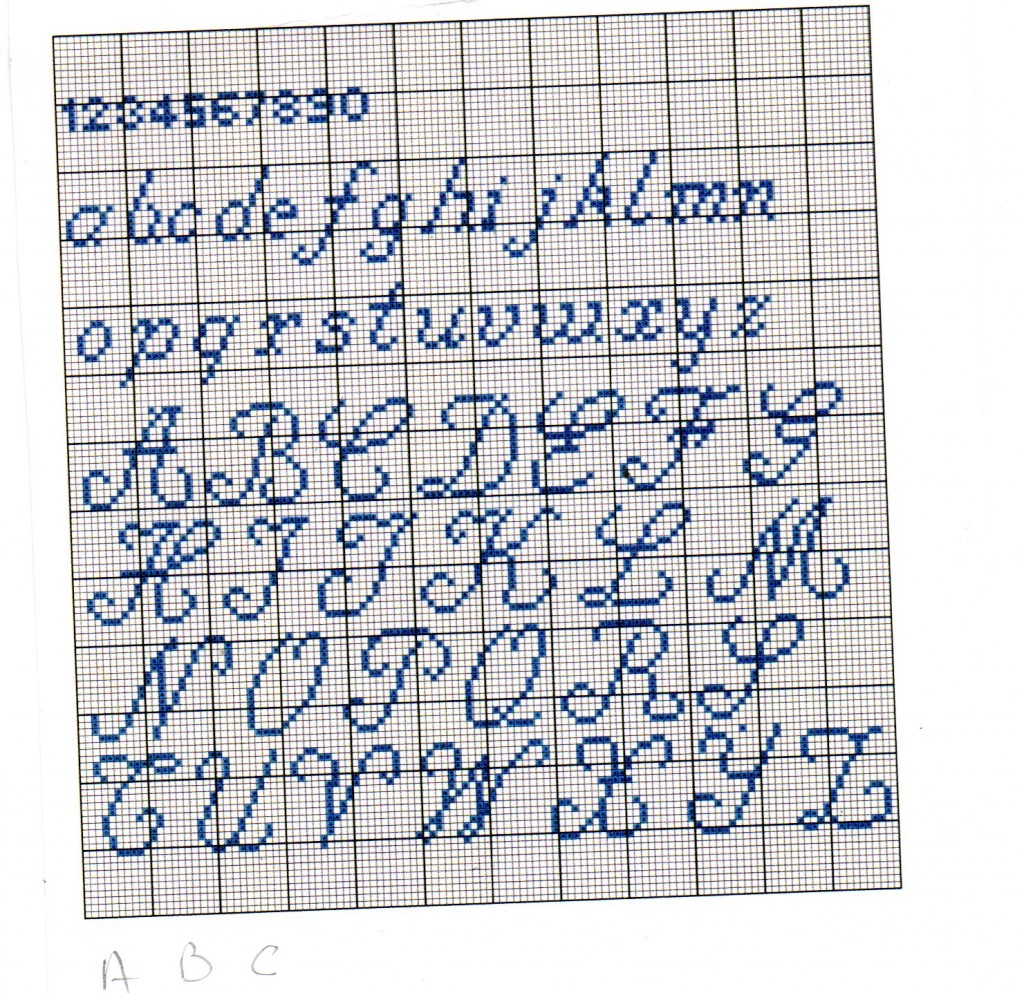 1234567890
abcdefghijklmn
opqrstuvwxyz
ABCDEFG
HIJKLM
NOPQRS
TUVWXYZ
A B C